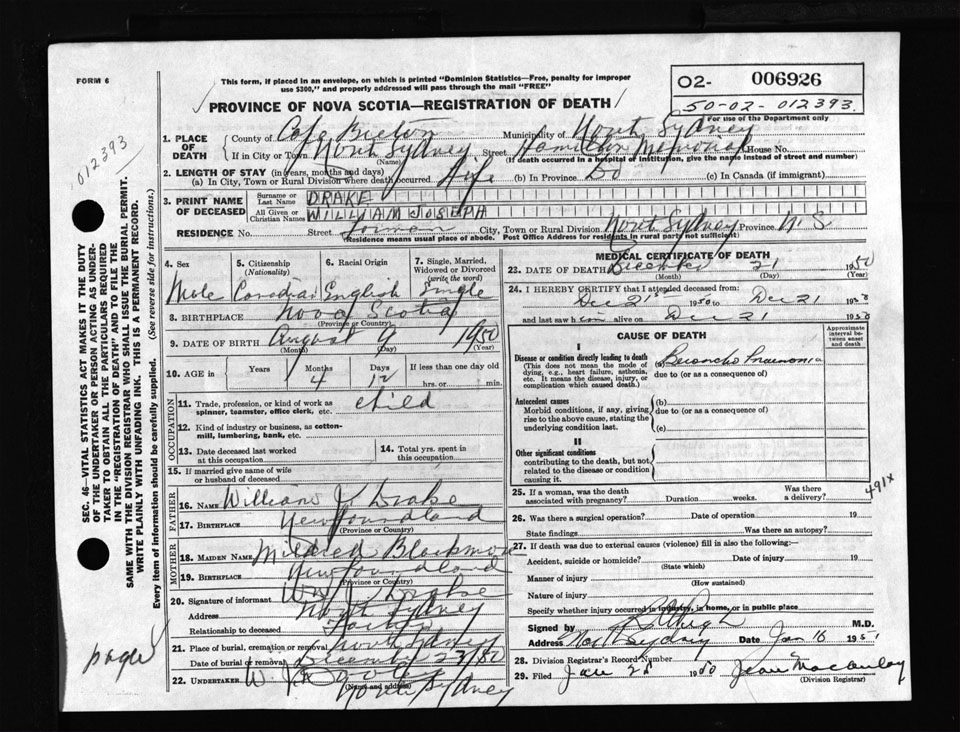 FORM 6
This form, if placed in an envelope, on which is printed "Dominion Statistics—Free, penalty for improper
use $300," and properly addressed will pass through the mail "FREE"
O2- 006926
50-02-012393
For use of the Department only
PROVINCE OF NOVA SCOTIA—REGISTRATION OF DEATH
012393
1. PLACE OF DEATH County of Cape Breton Municipality of North Sydney
If in City or Town North Sydney Street Hamilton Memorial House No.
(Name) (If death occurred in a hospital of institution, give the name instead of street and number)
2. LENGTH OF STAY (in years, months and days)
(a) In City, Town or Rural Division where death occurred Life (b) In Province Do (c) In Canada (if immigrant)
3. PRINT NAME OF DECEASED Surname or Last Name DRAKE
All Given or Christian Names WILLIAM JOSEPH
RESIDENCE No. Street City, Town or Rural Division North Sydney Province N.S
(Residence means usual place of abode. Post Office Address for residents in rural parts not sufficient)
4. Sex 5. Citizenship (Nationality) 6. Racial Origin 7. Single, Married, Widowed or Divorced (write the word)
Male Canadian English Single
8. BIRTHPLACE Nova Scotia
(Province or Country)
9. DATE OF BIRTH August 9 1950
(Month) (Day) (Year)
10. AGE in Years Months Days If less than one day old
4 12 hrs. or min.
OCCUPATION
11. Trade, profession, or kind of work as spinner, teamster, office clerk, etc. child
12. Kind of industry or business, as cotton-mill, lumbering, bank, etc.
13. Date deceased last worked at this occupation
14. Total yrs. spent in this occupation
15. If married give name of wife or husband of deceased
FATHER
16. NAME William J. Drake
17. BIRTHPLACE Newfoundland
(Province or Country)
MOTHER
18. MAIDEN NAME Mildred
19. BIRTHPLACE Newfoundland
(Province or Country)
20. Signature of informant Wm J. Drake
Address North Sydney
Relationship to deceased Father
21. Place of burial, cremation or removal North Sydney
Date of burial or removal December 23/50
22. UNDERTAKER W. J.
(Name and address) North Sydney
MEDICAL CERTIFICATE OF DEATH
23. DATE OF DEATH December 21 1950
(Month) (Day) (Year)
24. I HEREBY CERTIFY that I attended deceased from:
Dec 21st 1950 to Dec 21 1950
and last saw him alive on Dec 21 1950
CAUSE OF DEATH
Approximate interval between onset and death
I
Disease or condition directly leading to death
(This does not mean the mode of dying, e.g., heart failure, asthenia, etc. It means the disease, injury, or complication which caused death.)
(a) Broncho Pneumonia
due to (or as a consequence of)
Antecedent causes
Morbid conditions, if any, giving rise to the above cause, stating the underlying condition last.
(b)
due to (or as a consequence of)
(c)
II
Other significant conditions
contributing to the death, but not related to the disease or condition causing it.
491X
25. If a woman, was the death associated with pregnancy? Duration weeks. Was there a delivery?
26. Was there a surgical operation? Date of operation 19
State findings Was there an autopsy?
27. If death was due to external causes (violence) fill in also the following:—
Accident, suicide or homicide? Date of injury 19
(State which)
Manner of injury
(How sustained)
Nature of injury
Specify whether injury occurred in industry, in home, or in public place
Signed by M.D.
Address North Sydney Date Jan 16 1951
28. Division Registrar's Record Number
29. Filed Jan 25 1950 Jean Macaulay
(Division Registrar)
SEC. 46—VITAL STATISTICS ACT MAKES IT THE DUTY
OF THE UNDERTAKER OR PERSON ACTING AS UNDER-
TAKER TO OBTAIN ALL THE PARTICULARS REQUIRED
IN THE "REGISTRATION OF DEATH" AND TO FILE THE
SAME WITH THE DIVISION REGISTRAR WHO SHALL ISSUE THE BURIAL PERMIT.
WRITE PLAINLY WITH UNFADING INK. THIS IS A PERMANENT RECORD.
Every item of information should be carefully supplied. (See reverse side for instructions.)